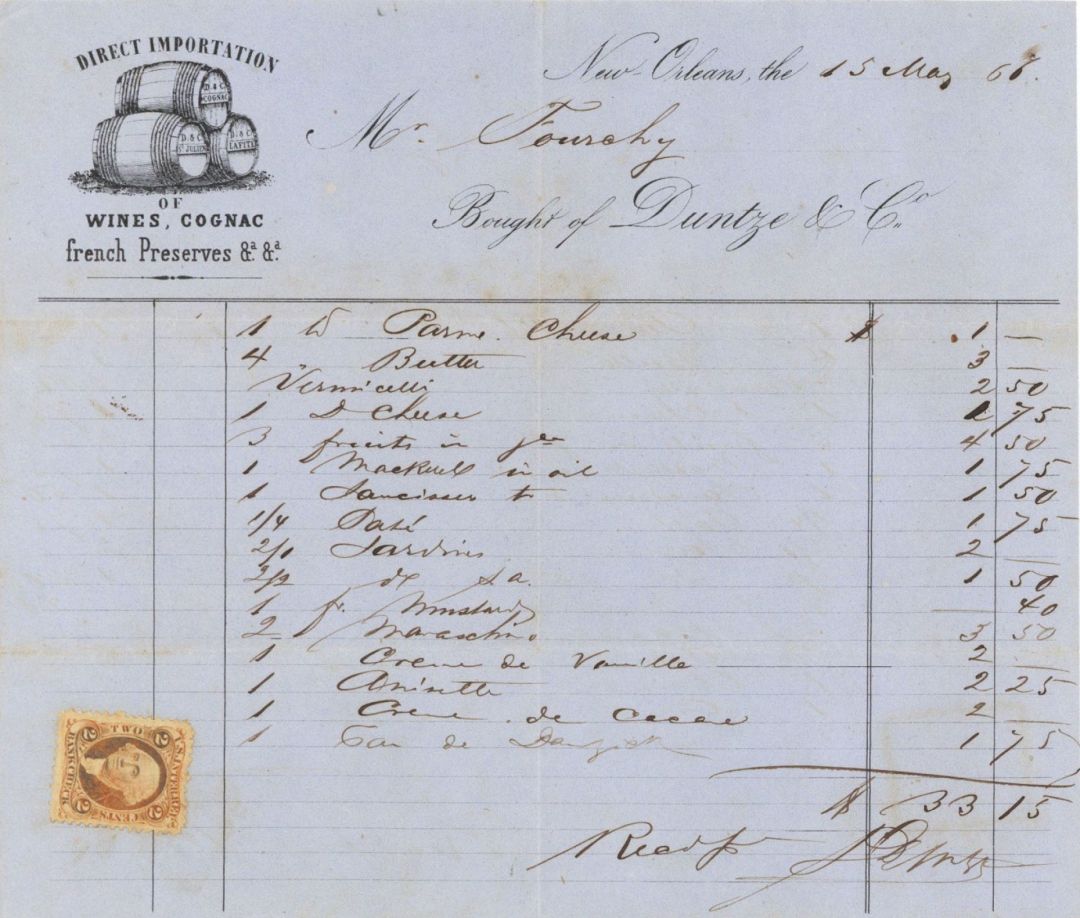 DIRECT IMPORTATION
D. & C.
COGNAC
D. & C.
ST JULIEN
D. & C.
LAFITE
OF
WINES, COGNAC
french Preserves &ª &ª
New-Orleans, the 15 May
Mr. Fourchy
Bought of Duntze & Co.
1 lb Parme. Cheese $ 1 —
4 " Butter 3 —
Vermicelli 2 50
1 D Cheese 1 75
3 fruits in 4 50
1 Mackerel in oil 1 75
1 Saucisses 1 50
1/4 Paté 1 75
2/1 Sardines 2 —
2/2 do s.a. 1 50
1 fr. Mustard — 40
2 Maraschino 3 50
1 Creme de Vanille 2 —
1 Anisette 2 25
1 Creme de Cacao 2 —
1 Eau de Dantzick 1 75
$ 33 15
Recd pt Duntze
U.S. INTER. REV.
TWO
CENTS
BANK CHECK
2
2
2
2